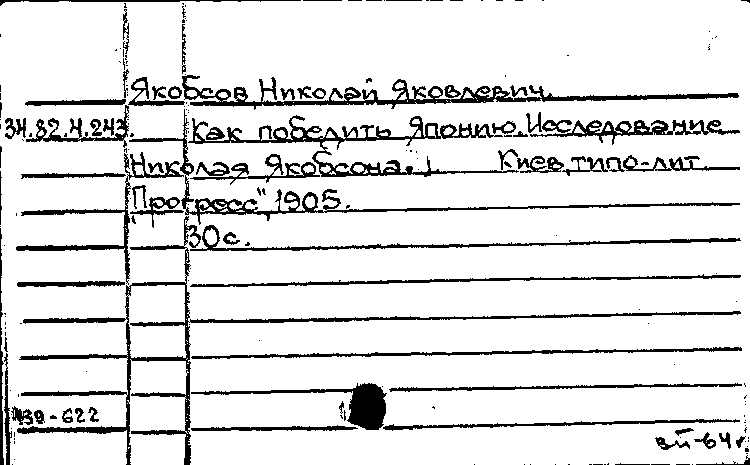 Якобсов, Николай Яковлевич.
34.82.4.243. Как победить Японию. Исследование
Николая Якобсона.
Киев, типо-лит.
"Прогресс", 1905.
30 с.
439-622
зй-64г